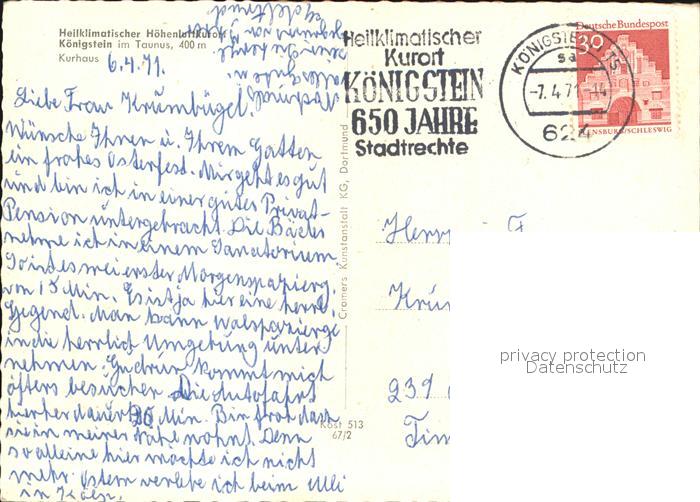 Heilklimatischer Höhenluftkurort
Königstein im Taunus, 400 m
Kurhaus
6.4.71.
Liebe Frau Krümbügel.
Wünsche Ihnen u. Ihrem Gatten
ein frohes Osterfest. Mir geht es gut
und bin ich in einer guten Privat-
Pension untergebracht. Die Bäder
nehme ich in einem Sanatorium.
So ist es mei erster Morgenspazierg.
von 15 Min. Es ist ja hier eine herrl.
Gegend. Man kann walspaziergä
in die herrlich Umgebung unter
nehmen. Gudrun kommt mich
öfters besuchen. Die Autofahrt
hierher dauert Min. Bin froh dass
sie in meiner Nähe wohnt. Denn
so alleine hier möchte ich nicht
mehr. Ostern verlebe ich beim Ulli
in Köln.
Cramers Kunstanstalt KG, Dortmund
Köst 513
67/2
Heilklimatischer
Kurort
KÖNIGSTEIN
650 JAHRE
Stadtrechte
KÖNIGSTE TS
sa
-7.4.71-14
624
Deutsche Bundespost
30
FLENSBURG/SCHLESWIG
Herrn F
Krüm
239
Tim
privacy protection
Datenschutz